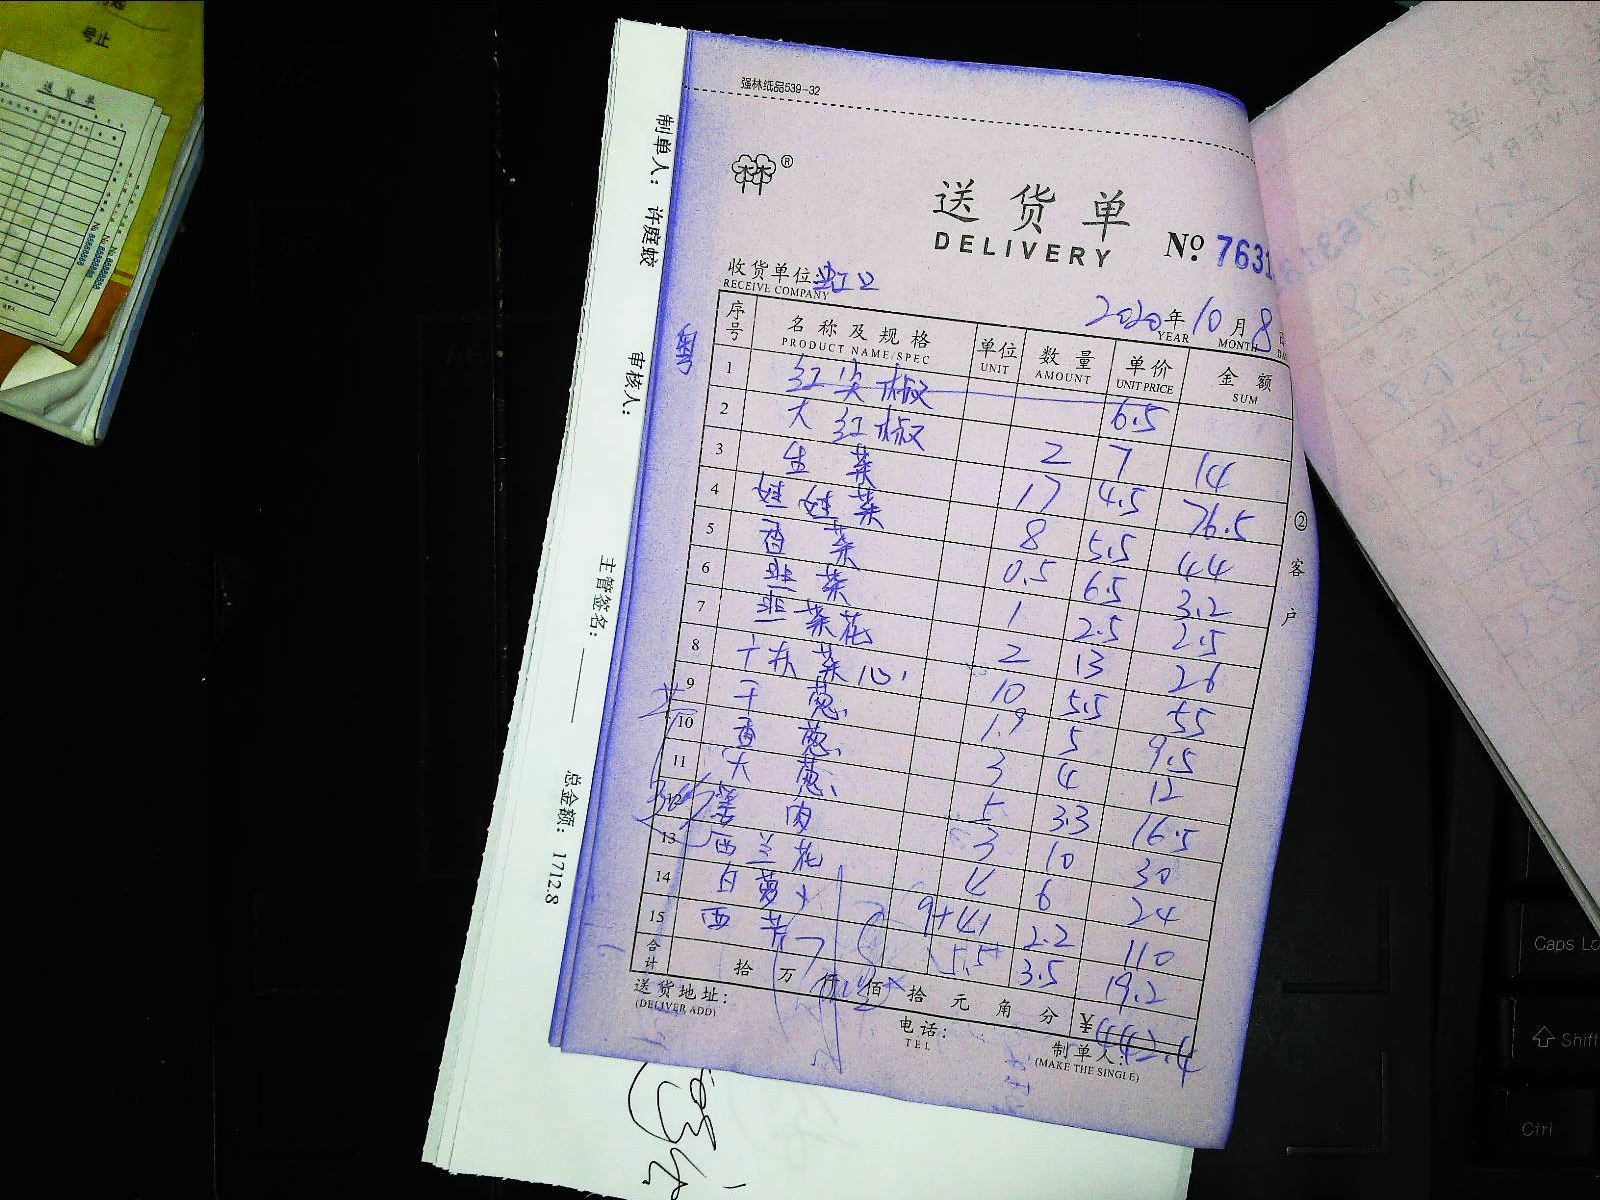 号止
送货单
强林纸品539-32
林®
送货单
DELIVERY
№ 7631
收货单位: 虹口
RECEIVE COMPANY
2020年10月8日
YEAR MONTH
序号 名称及规格 单位 数量 单价 金额
PRODUCT NAME/SPEC UNIT AMOUNT UNIT PRICE SUM
1 红尖椒 6.5
2 大红椒 2 7 14
3 生菜 17 4.5 76.5
4 娃娃菜 8 5.5 44
5 香菜 0.5 6.5 3.2
6 韭菜 1 2.5 2.5
7 韭菜花 2 13 26
8 广东菜心 10 5.5 55
9 干葱 1.9 5 9.5
10 香葱 3 4 12
11 大葱 5 3.3 16.5
12 姜肉 3 10 30
13 西兰花 4 6 24
14 白萝卜 9+41 2.2 110
15 西芹 5.5 3.5 19.2
合计 拾万仟佰拾元角分 ¥442.4
送货地址:
(DELIVER ADD)
电话:
TEL
制单人:
(MAKE THE SINGLE)
②客户
制单人: 许庭蛟
审核人:
主管签名:
总金额: 1712.8
Caps Lo
Shift
Ctrl